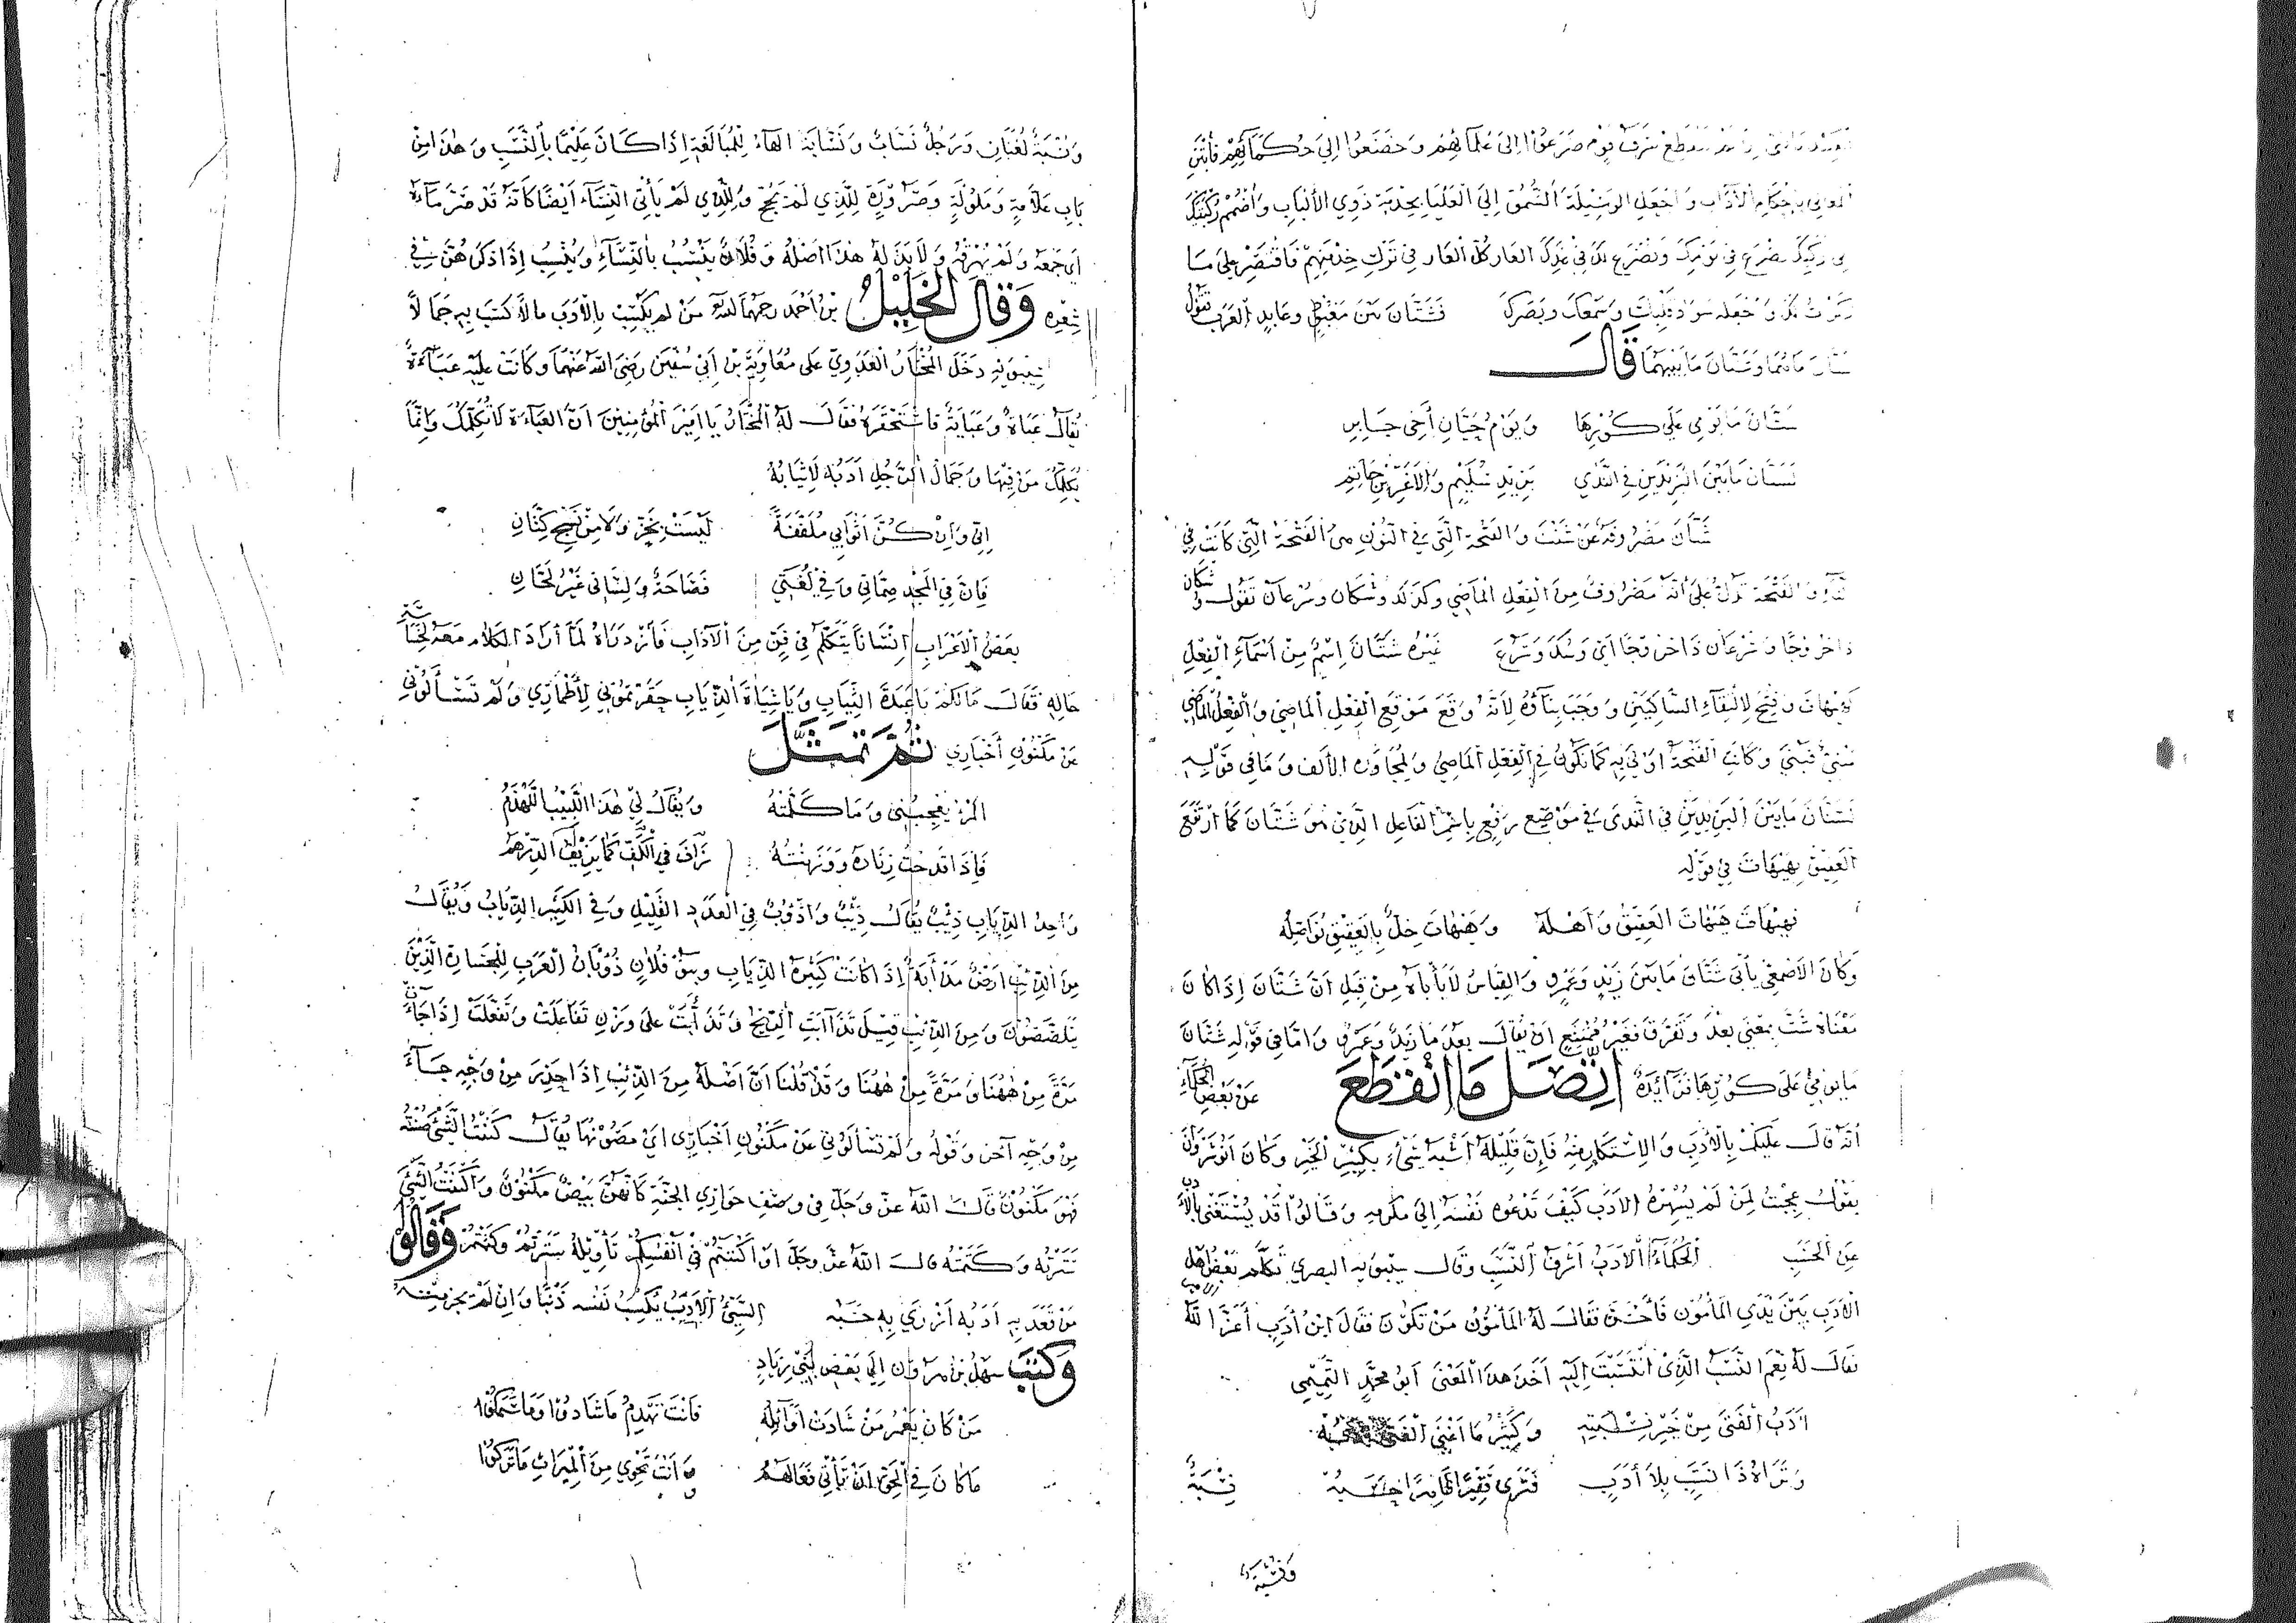 شرف قوم ضرعوا الى علمائهم وخضعوا الى حكمائهم فابتن
المعالي باحكام الآداب واجعل الوسيلة السمو الى العليا بخدمة ذوي الألباب واضمم ركبتك
العار كل العار في ترك خدمتهم فاقتصر على ما
وسمعك وبصرك فشتان بين مغبط وعابد العرب تقول
شتان ما هما وشتان ما بينهما قال
شتان ما يومي على كورها ويوم حيان أخي جابر
لشتان ما بين اليزيدين في الندي يزيد سليم والاغر بن حاتم
شتان مصروفة عن شتت والفتحة التي في النون هي الفتحة التي كانت في
التاء والفتحة تدل على أنه مصروف من الفعل الماضي وكذلك وشكان وسرعان تقول وشكان
ذا خروجا وسرعان ذا خروجا أي وشك وسرع غيره شتان اسم من اسماء الفعل
كهيهات وفتح لالتقاء الساكنين ووجب بناؤه لأنه وقع موقع الفعل الماضي والفعل الماضي
مبني فبني وكانت الفتحة اولى به كما تكون في الفعل الماضي ولمجاورة الألف وما في قوله
لشتان ما بين اليزيدين في الندى في موضع رفع باسم الفاعل الذي هو شتان كما ارتفع
العقيق بهيهات في قوله
فهيهات هيهات العقيق وأهله وهيهات خل بالعقيق نواصله
وكان الاصمعي يأبى شتان ما بين زيد وعمرو والقياس لا يأباه من قبل ان شتان إذا كان
معناه شت بمعنى بعد وتفرق فغير ممتنع ان يقال بعد ما زيد وعمرو واما في قوله شتان
ما يومي على كورها فزائدة اتصل ما انقطع عن بعض الحكماء
أنه قال عليك بالأدب والاستكثار منه فإن قليله أشبه شيء بكثير الخير وكان انوشروان
يقول عجبت لمن لم يشهره الادب كيف تدعوه نفسه إلى مكرمة وقالوا قد يستغنى بالأدب
عن الحسب الحكماء الادب أشرف النسب وقال سيبويه البصري تكلم بعض اهل
الادب بين يدي المأمون فأحسن فقال له المأمون من تكون فقال ابن أدب أعز الله
فقال له نعم النسب الذي انتسبت إليه أخذ هذا المعنى ابو محمد التميمي
ادب الفتى من خير نسبته وكثير ما اغنى الفتى
وتراه ذا نسب بلا أدب فترى فقيرا ظاهرا حسبه نسبة
ونسبة
ونسبة لغتان ورجل نساب ونسابة الهاء للمبالغة إذا كان عليما بالنسب وهذا من
باب علامة وملولة وصرورة للذي لم يحج وللذي لم يأتي النساء أيضا كأنه قد صر ماءه
اي جمعه ولم يهرقه ولا بد له هذا اصله وفلان ينسب بالنساء وينسب إذا ذكر هن في
شعره وقال الخليل بن أحمد رحمهما الله من لم يكتسب بالأدب مالا كتسب به جمالا
سيبويه دخل المختار العدوي على معاوية بن ابي سفين رضي الله عنهما وكانت عليه عباءة
يقال عباة وعباية فاستحقره فقال له المختار يا امير المؤمنين ان العباءة لا تكلمك وانما
يكلمك من فيها وجمال الرجل ادبه لا ثيابه
اني وان كن أثوابي ملففة ليست بخز ولا من نسج كتان
فإن في المجد هماتي وفي لغتي فصاحة ولساني غير لحان
بعض الاعراب انسانا يتكلم في فن من الآداب فأزدراه لما أراد الكلام معه لخسة
حاله فقال ما لكم يا عبدة الثياب ويا شياة الذياب حقرتموني لأطماري ولم تسألوني
عن مكنون أخباري ثم تمثل
المرء يعجبني وما كلمته ويقال لي هذا اللبيب اللهذم
فإذا قدحت زناده ووزنته زاف في الكف كما يزيف الدرهم
واحد الذياب ذئب يقال ذئب واذوب في العدد القليل وفي الكثير الذياب ويقال
من الذئب ارض مذأبة إذا كانت كثيرة الذياب وبنو فلان ذؤبان العرب للجسارة الذين
يتلصصون ومن الذئب قيل تذاآبت الريح وتذأبت على وزن تفاعلت وتفعلت إذا جاءت
مرة من ههنا ومرة من ههنا وقد قلنا ان اصله من الذئب إذا حذر من وجه جاء
من وجه آخر وقوله ولم تسألوني عن مكنون اخباري اي مصونها يقال كننت الشيء صنته
فهو مكنون قال الله عز وجل في وصف حواري الجنة كأنهن بيض مكنون واكننت الشيء
سترته وكتمته قال الله عز وجل او اكننتم في انفسكم تأويله سترتم وكتمتم وقالوا
من قعد به ادبه ازري به حسبه السيئ الادب يكسب نفسه ذنبا وان لم يجر منه
وكتب سهل بن مروان إلى بعض بني زياد
من كان يعمر من شادت أوائله فانت تهدم ما شادوا وما سمكوا
ما كان في الحق ان تأتي فعالهم وانت تحوي من الميراث ما تركوا